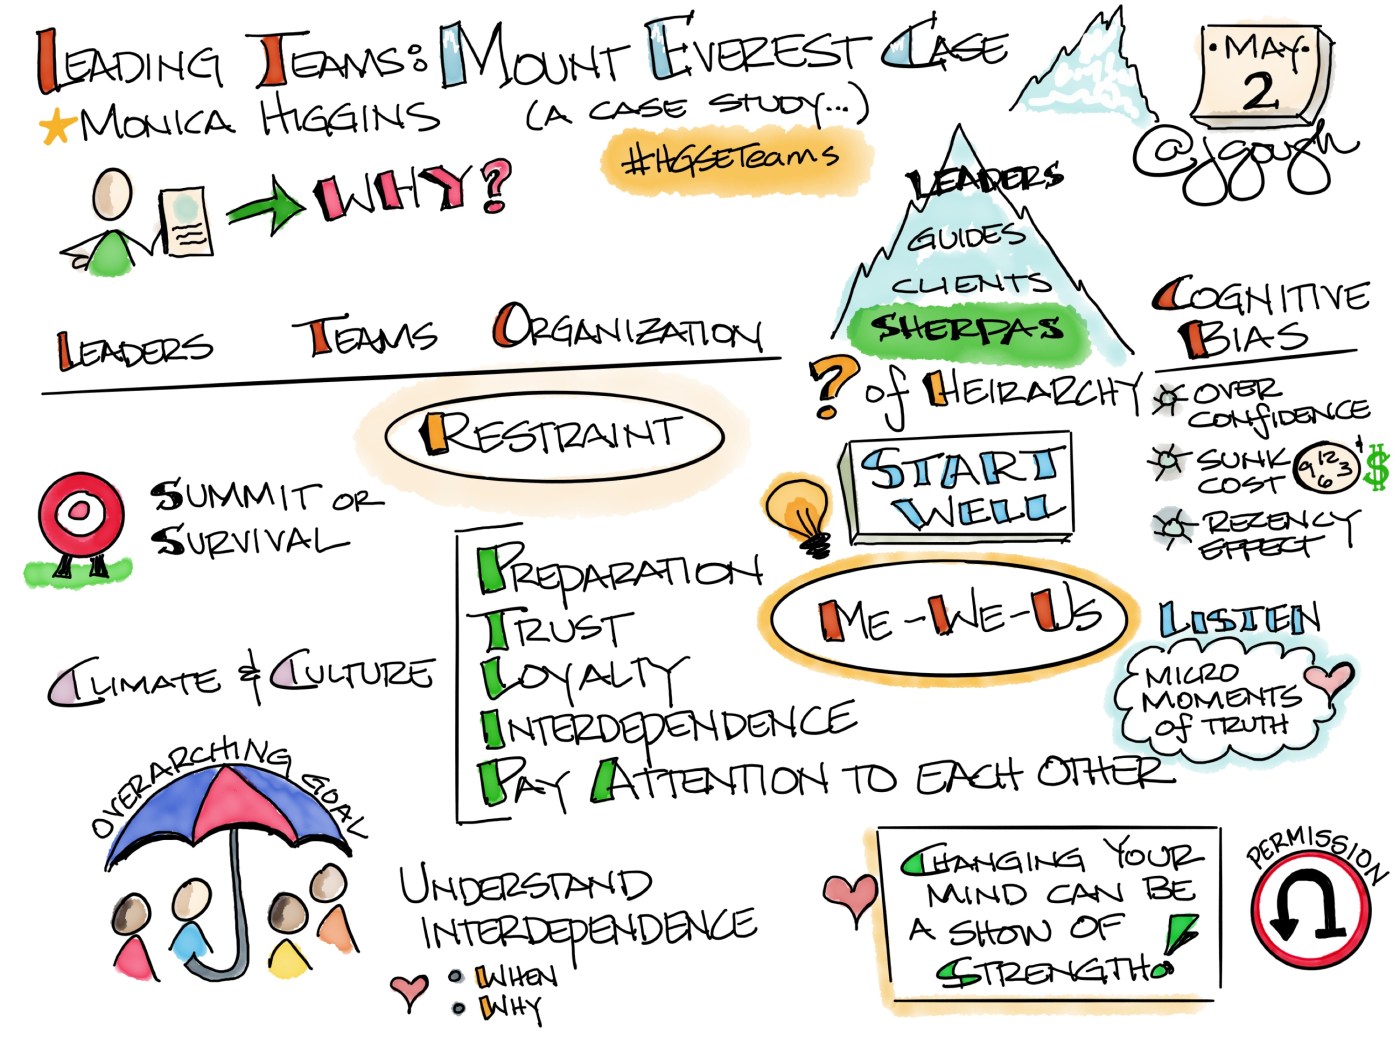 LEADING TEAMS: MOUNT EVEREST CASE
MONICA HIGGINS
(A CASE STUDY...)
#HGSETeams
MAY
2
@jgough
WHY?
LEADERS
GUIDES
CLIENTS
SHERPAS
? of HEIRARCHY
LEADERS TEAMS ORGANIZATION
RESTRAINT
SUMMIT OR
SURVIVAL
CLIMATE & CULTURE
PREPARATION
TRUST
LOYALTY
INTERDEPENDENCE
PAY ATTENTION TO EACH OTHER
START
WELL
ME-WE-US
COGNITIVE
BIAS
OVER
CONFIDENCE
SUNK
COST
12
9 3
6
$
REZENCY
EFFECT
LISTEN
MICRO
MOMENTS
of TRUTH
OVERARCHING GOAL
UNDERSTAND
INTERDEPENDENCE
: WHEN
WHY
CHANGING YOUR
MIND CAN BE
A SHOW OF
STRENGTH!
PERMISSION